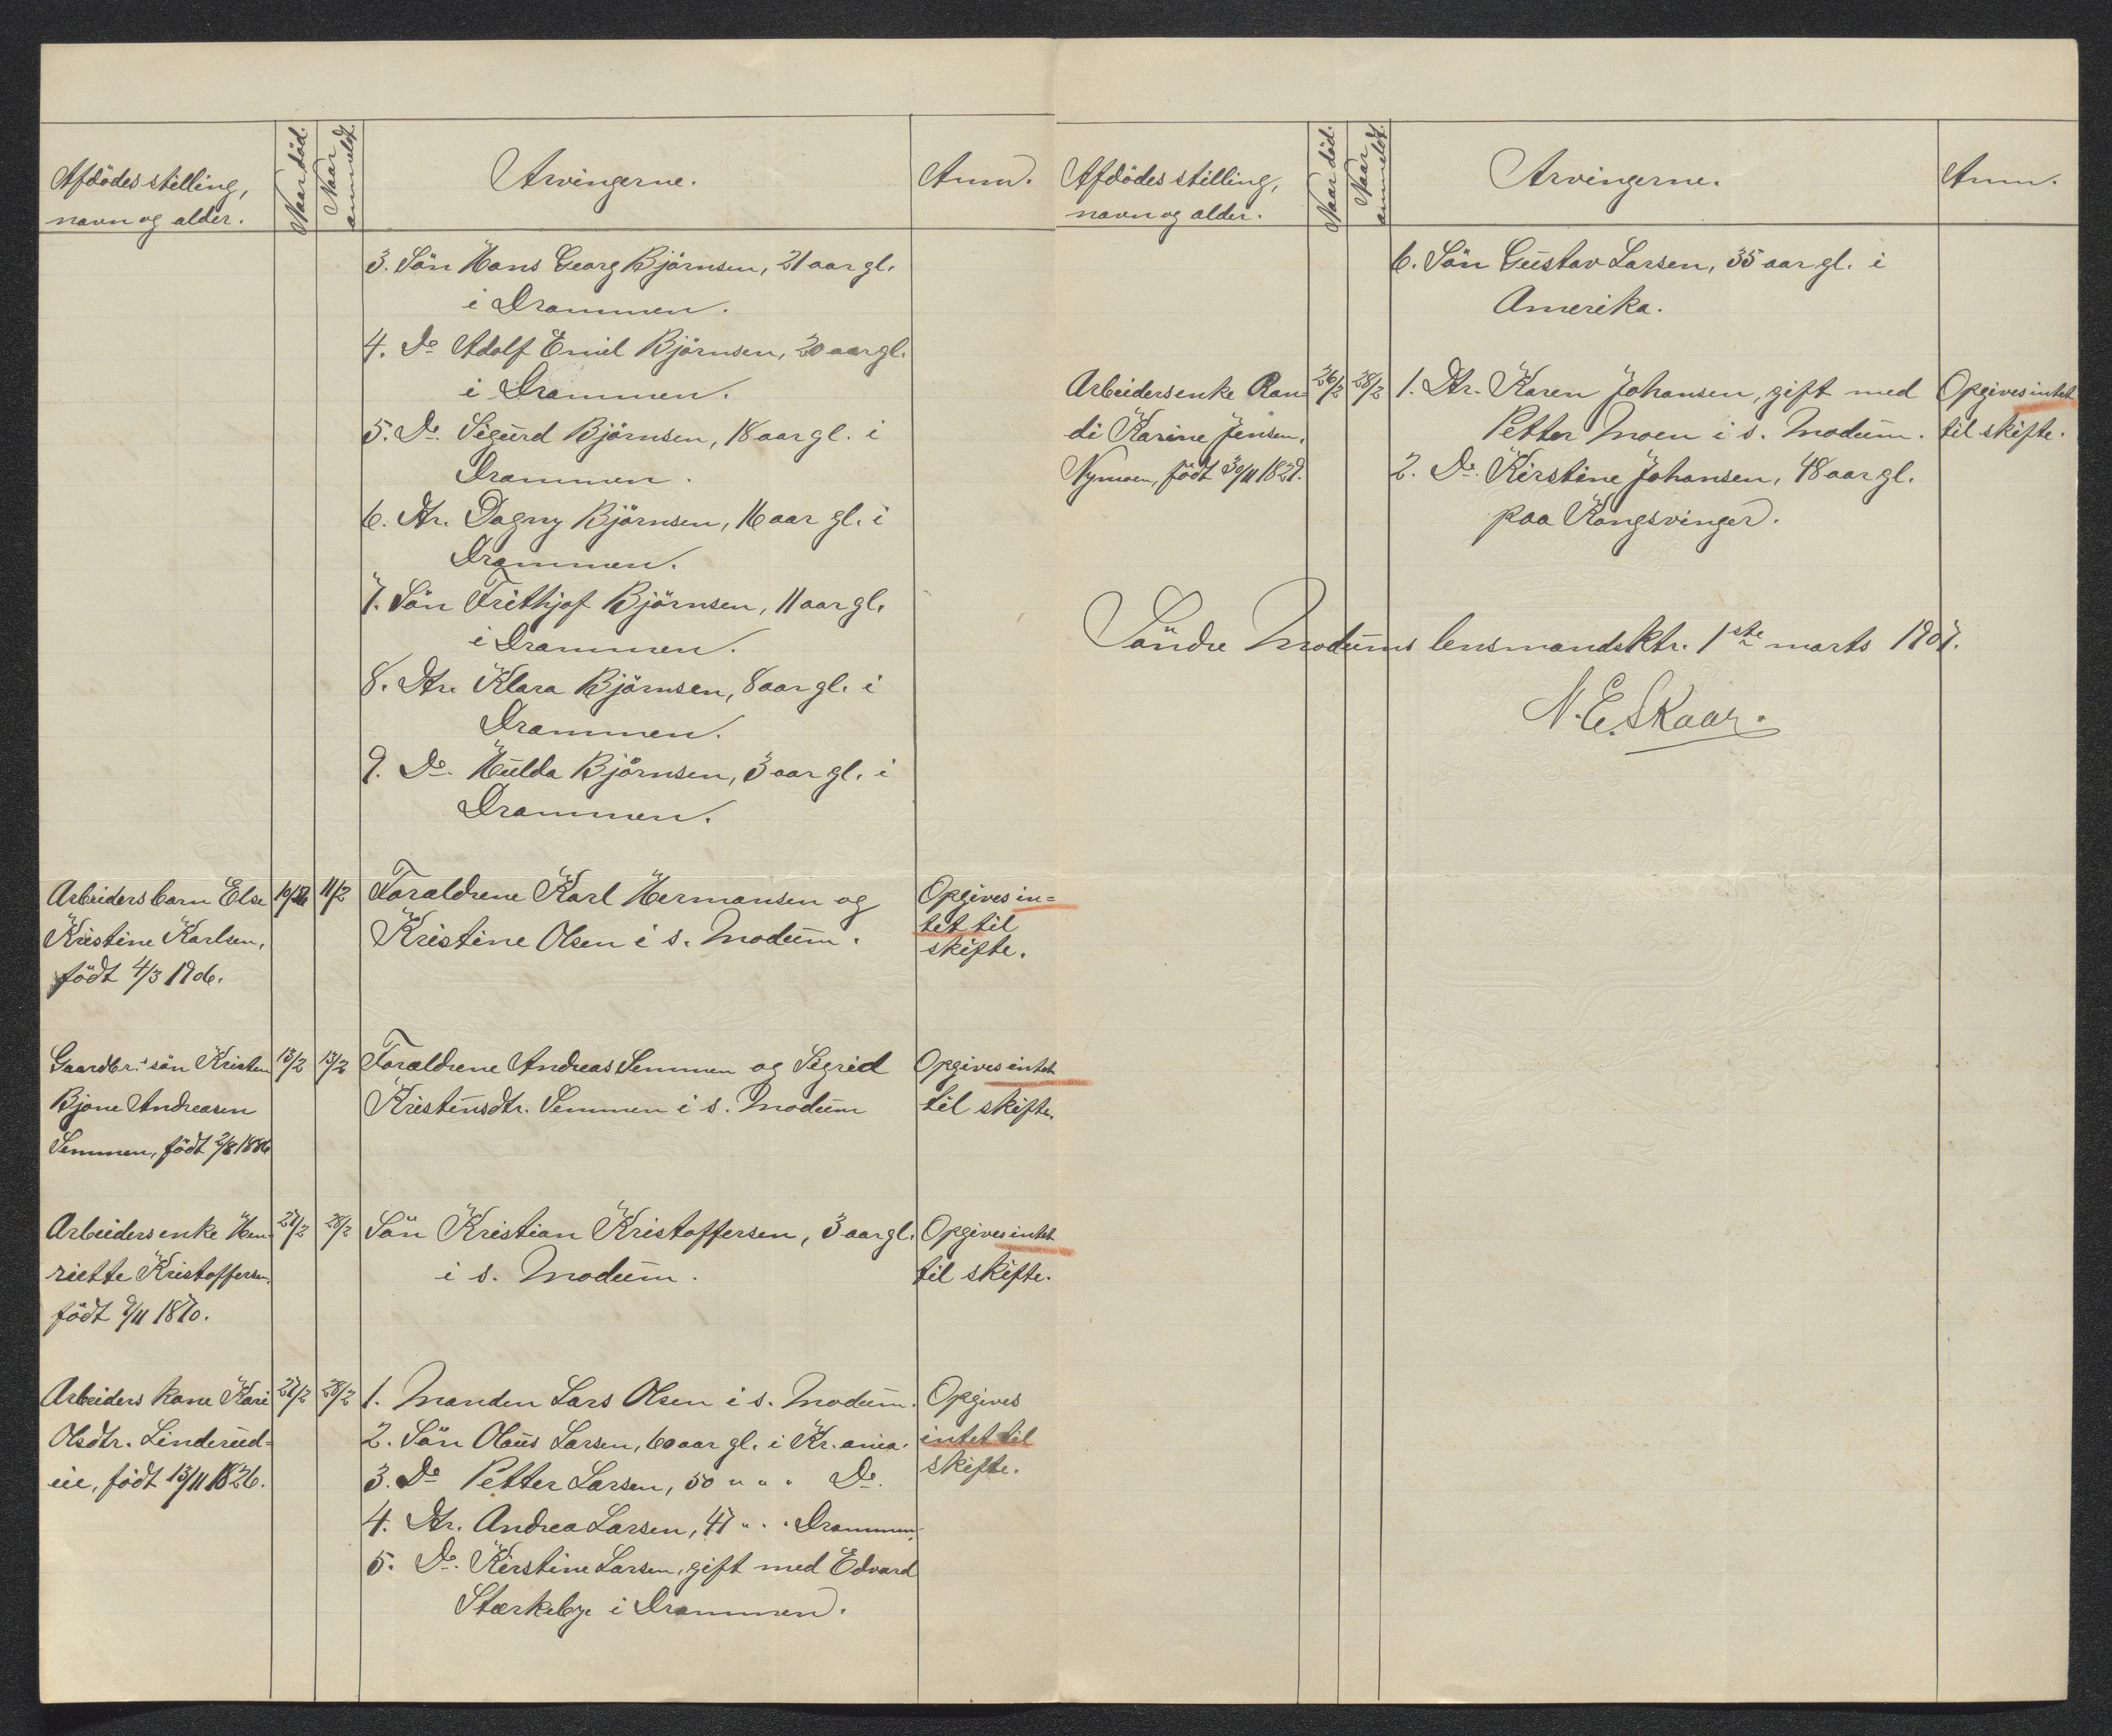 Afdödes stilling,
navn og alder.
Naar död.
Naar
anmeldt.
Arvingerne.
Anm.
3. Sön Hans Georg Björnsen, 21 aar gl.
i Drammen.
4. Do Adolf Emil Björnsen, 20 aar gl.
i Drammen.
5. Do. Sigurd Björnsen, 18 aar gl. i
Drammen.
6. Dtr. Dagny Björnsen, 16 aar gl. i
Drammen.
7. Sön Frithjof Björnsen, 11 aar gl.
i Drammen.
8. Dtr. Klara Björnsen, 8 aar gl. i
Drammen.
9. Do. Hulda Björnsen, 3 aar gl. i
Drammen.
Arbeidersbarn Else
Kristine Karlsen,
födt 4/3 1906.
11/2
Foraldrene Karl Hermansen og
Kristine Olsen i s. Modum.
Opgives in=
tet til
skifte.
Gaardbr.s sön Kristen
Bjone Andreasen
Semmen, födt 2/8 1886
13/2
13/2
Foraldrene Andreas Semmen og Sigrid
Kristensdtr. Semmen i s. Modum
Opgives intet
til skifte.
Arbeidersenke Hen=
riette Kristoffersen
födt 9/11 1870.
27/2
28/2
Sön Kristian Kristoffersen, 3 aar gl.
i s. Modum.
Opgives intet
til skifte.
Arbeiders kone Kari
Olsdtr. Linderud=
eie, födt 13/11 1826.
27/2
28/2
1. Manden Lars Olsen i s. Modum.
2. Sön Olaus Larsen, 60 aar gl. i Kr.ania.
3. Do Petter Larsen, 50 " " " Do.
4. Dtr. Andrea Larsen, 47 " " " Drammen.
5. Do. Kirstine Larsen, gift med Edvard
Størkeby i Drammen.
Opgives
intet til
skifte.
Afdödes stilling,
navn og alder.
Naar död.
Naar
anmeldt.
Arvingerne.
Anm.
6. Sön Gustav Larsen, 35 aar gl. i
Amerika.
Arbeidersenke Ran=
di Karine Jensen,
Nymoen, födt 30/11 1829.
26/2
28/2
1. Dtr. Karen Johansen, gift med
Petter Moen i s. Modum.
2. Do. Kirstine Johansen, 48 aar gl.
paa Kongsvinger.
Opgives intet
til skifte.
Söndre Modums lensmandsktr. 1ste marts 1907.
N. E. Skaar.